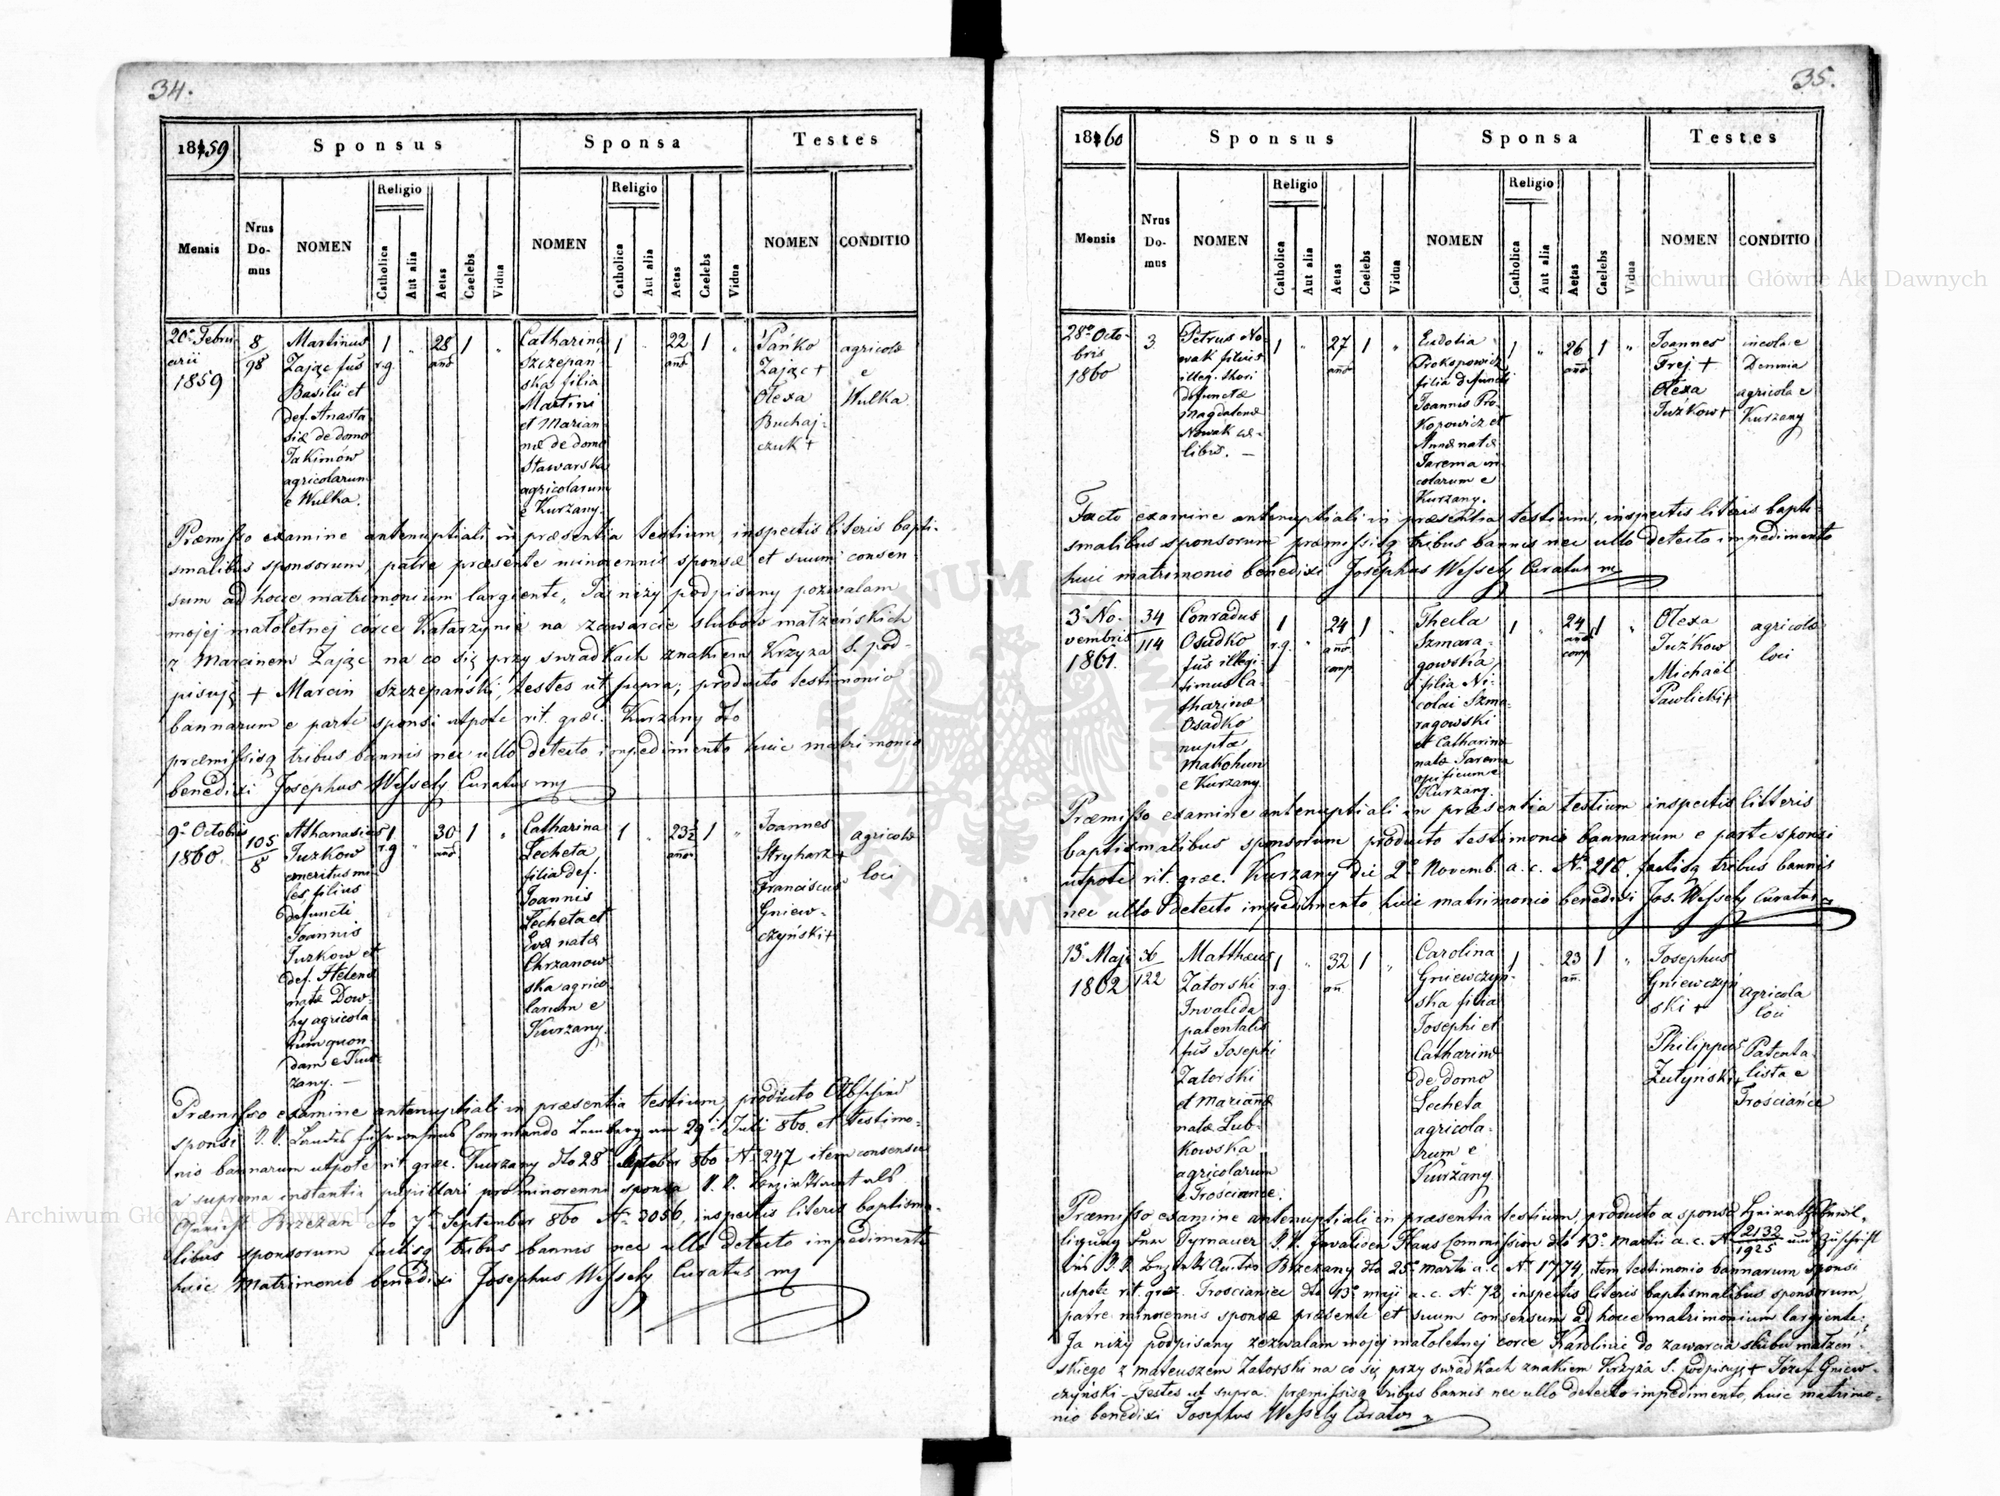 34.
1859
Sponsus
Sponsa
Testes
Mensis
Nrus Do- mus
NOMEN
Religio
Catholica
Aut alia
Aetas
Caelebs
Vidua
NOMEN
Religio
Catholica
Aut alia
Aetas
Caelebs
Vidua
NOMEN
CONDITIO
20a Febru
arii
1859
8
98
Martinus
Zając fus
Basilii et
def. Anasta
siæ de domo
Jakimów
agricolarum
e Wulka.
1
r.g.
"
28
ann
1
"
Catharina
Szczepań
ska filia
Martini
et Marian
næ de domo
Stawarska
agricolarum
e Kurzany.
1
"
22
ann
1
"
Pańko
Zając +
Olexa
Buchaj-
czuk +
agricolæ
e
Wulka
Præmisso examine antenuptiali in præsentia testium, inspectis literis bapti-
smalibus sponsorum, patre præsente minorennis sponsæ et suum consen
sum ad hocce matrimonium largiente, Ja niży podpisany pozwalam
mojej małoletnej corce Katarzynie na zawarcie slubów małżeńskich
z Marcinem Zając na co się przy swiadkach znakiem Krzyza S. pod-
pisuję + Marcin Szczepański, testes ut supra; producto testimonio
bannarum e parte sponsi utpote rit. græc. Kurzany dto
præmissisq tribus bannis nec ullo detecto impedimento huic matrimonio
benedixi Josephus Wessely Curatus mp
9a Octobris
1860.
105
8
Athanasius
Juzkow
emeritus mi
les, filius
defuncti
Joannis
Juzkow et
def. Helenæ
natæ Dow-
hy agricola
rum quon
dam e Kur
zany. —
1
r.g
"
30
ann
1
"
Catharina
Lecheta
filia def.
Joannis
Lecheta et
Evæ natæ
Chrzanow
ska agrico
larum e
Kurzany.
1
"
23½
ann
1
"
Joannes
Stryharz +
Franciscus
Gniew-
czyński +
agricolæ
loci
Præmisso examine antenuptiali in præsentia testium, producto Abschied
sponsi K.K. Landes Commando Lemberg am 29t Juli 860. et testimo-
nio bannarum utpote rit. græc. Kurzany dto 28 September 860 No 247 item consensu
a suprema instantia pupillari pro minorenni sponsa K.K. Bezirksamt als
Gericht Brzezan dto 7ten September 860 No 3056, inspectis literis baptisma-
libus sponsorum factisq tribus bannis nec ullo detecto impedimento
huic Matrimonio benedixi Josephus Wessely Curatus mp
35.
1860
Sponsus
Sponsa
Testes
Mensis
Nrus Do- mus
NOMEN
Religio
Catholica
Aut alia
Aetas
Caelebs
Vidua
NOMEN
Religio
Catholica
Aut alia
Aetas
Caelebs
Vidua
NOMEN
CONDITIO
28a Octo-
bris
1860
3
Petrus No
wak filius
illeg. thori
defunctæ
Magdalenæ
Nowak cæ-
libis. —
1
"
27
ann
1
"
Eudotia
Prokopowicz
filia defuncti
Joannis Pro
kopowicz et
Annæ natæ
Jarema in
colarum e
Kurzany.
1
"
26
ann
1
"
Joannes
Frej +
Olexa
Juzkow +
incola e
Demnia
agricola e
Kurzany
Facto examine antenuptiali in præsentia testium, inspectis literis bapti-
smalibus sponsorum præmissisq tribus bannis nec ullo detecto impedimento
huic matrimonio benedixi Josephus Wessely Curatus mp
3a No-
vembris
1861.
34
114
Conradus
Osadko
fus illegi
timus Ca
tharinæ
Osadko
nuptæ
Makohun
e Kurzany.
1
r.g.
"
24
ann
comp
1
"
Thecla
Szmara-
gowska
filia Ni-
colai Szma-
ragowski
et Catharinæ
natæ Jarema
opificum e
Kurzany.
1
"
24
ann
comp
1
"
Olexa
Juzkow
Michael
Pawlicki +
agricolæ
loci
Præmisso examine antenuptiali in præsentia testium inspectis litteris
baptismalibus sponsorum producto testimonio bannarum e parte sponsi
utpote rit. græc. Kurzany die 2a Novemb. a. c. No 216. factisq tribus bannis
nec ullo detecto impedimento, huic matrimonio benedixi Jos. Wessely Curatus
13a Maji
1862
36
122
Mattheus
Zatorski
Invalida
patentalis
fus Josephi
Zatorski
et Mariannæ
natæ Lub-
kowska
agricolarum
e Trościaniec.
1
r.g.
"
32
an.
1
"
Carolina
Gniewczyń-
ska filia
Josephi et
Catharinæ
de domo
Lecheta
agricola-
rum e
Kurzany
1
"
23
an.
1
"
Josephus
Gniewczyń
ski +
Philippus
Zutyński +
agricola
loci
Patenta-
lista e
Trościańce
Præmisso examine antenuptiali in præsentia testium, producto a sponso Heirathsbewil-
ligung von Tyrnauer K.K. Invaliden Haus Commission dto 13a Martii a. c. No 2132/1925 und Zuschrift
des K.K. Bezirks Amtes Brzezany dto 25a Martii a. c. No 1774, item testimonio bannarum sponsi
utpote rit. græc. Trościaniec dto 13a maji a. c. No 72, inspectis literis baptismalibus sponsorum,
patre minorennis sponsæ præsente et suum consensum ad hocce matrimonium largiente:
Ja niży podpisany zezwalam mojej małoletnej corce Karolinie do zawarcia slubu małzeń
skiego z Mateuszem Zatorski na co się przy swiadkach znakiem Krzyża S. podpisuję + Józef Gniew-
czyński – Testes ut supra. præmissisq tribus bannis nec ullo detecto impedimento, huic matrimo-
nio benedixi Josephus Wessely Curatus
Archiwum Główne Akt Dawnych
Archiwum Główne Akt Dawnych
ARCHIWUM GŁÓWNE AKT DAWNYCH